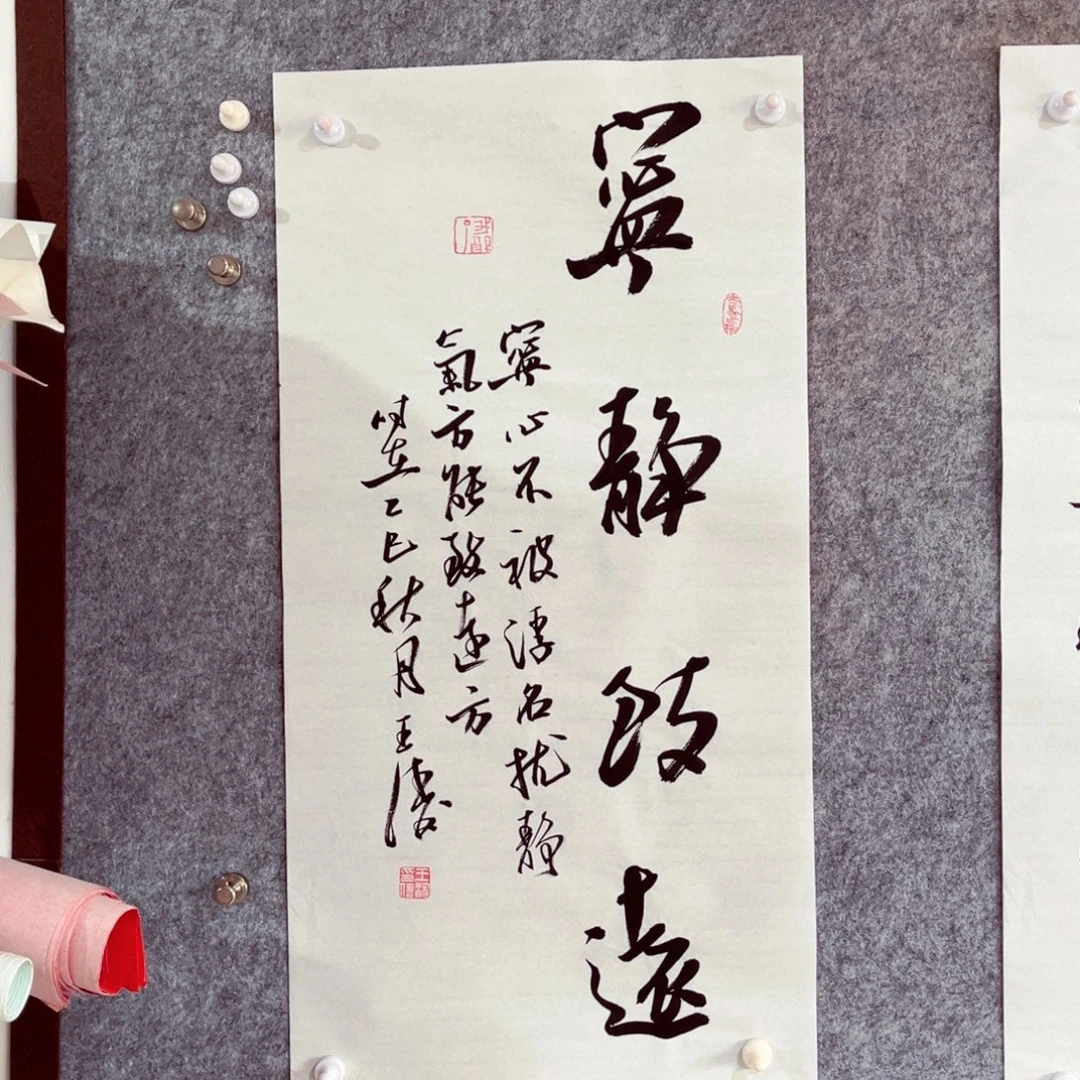 寧靜致遠
寧心不被浮名扰靜
氣方能致遠方
时在乙巳秋月王涛